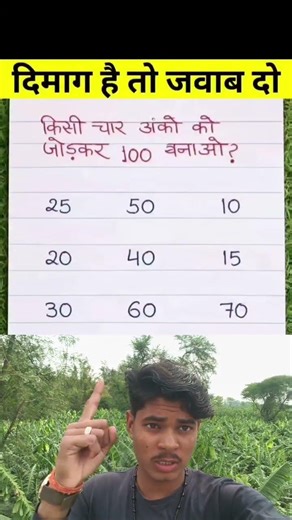 दिमाग है तो जवाब दो
किसी चार अंको को
जोड़कर 100 बनाओ?
25 50 10
20 40 15
30 60 70